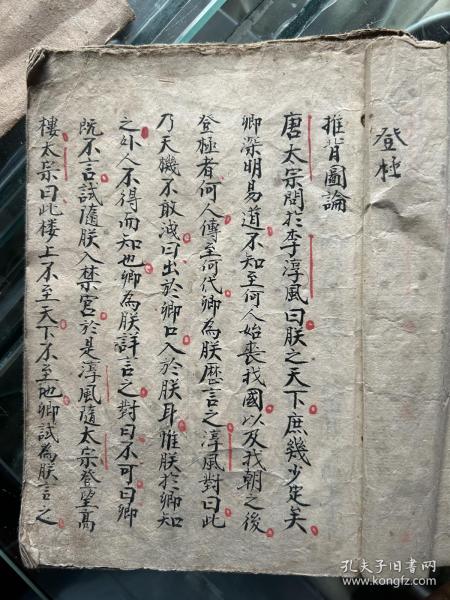 登極
推背圖論
唐太宗問於李淳風曰朕之天下庶幾少定矣
卿深明易道不知至何人始喪我國以及我朝之後
登極者何人傳至何代卿為朕歷言之淳風對曰此
乃天機不敢洩曰出於卿口入於朕耳惟朕於卿知
之外人不得而知也卿為朕詳言之對曰不可曰卿
既不言試隨朕入禁宮於是淳風隨太宗登望高
樓太宗曰此樓上不至天下不至地卿試為朕言之
孔夫子旧书网
www.kongfz.com